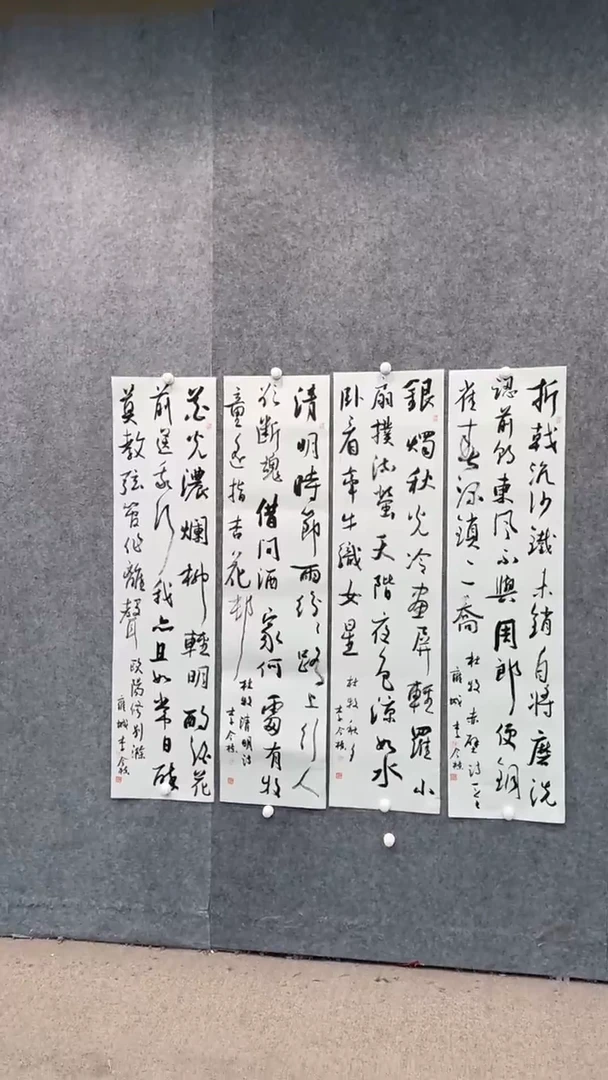 折戟沉沙鐵未銷自將磨洗
認前朝東風不與周郎便銅
雀春深鎖二喬
杜牧赤壁詩一首
李今枝
銀燭秋光冷畫屏輕羅小
扇撲流螢天階夜色涼如水
卧看牽牛織女星
杜牧秋夕
李今枝
清明時節雨紛〻路上行人
欲斷魂借問酒家何處有牧
童遙指杏花村
杜牧清明詩
李今枝
花光濃爛柳輕明酌酒花
前送我行我亦且如常日醉
莫教弦管作離聲
歐陽修別滁
李今枝